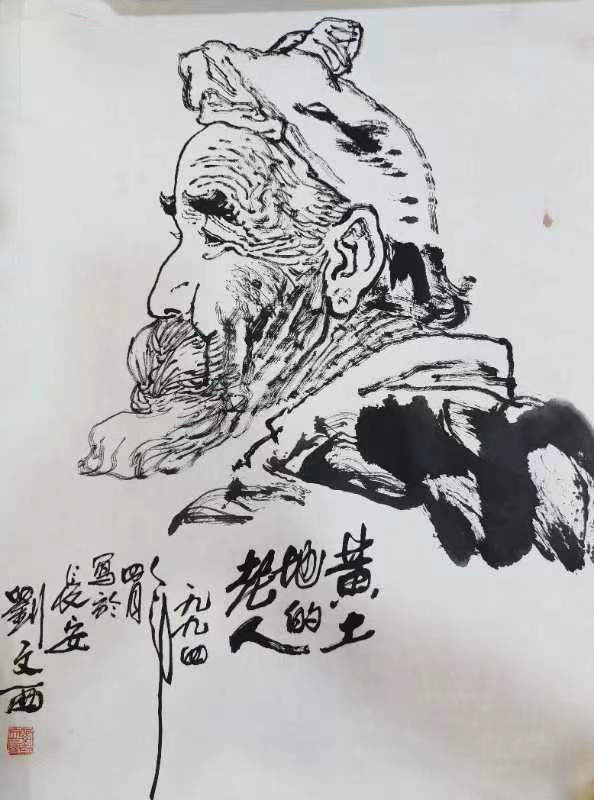 黄土
地的
老人
一九九四
年
四月
寫於
長安
劉文西